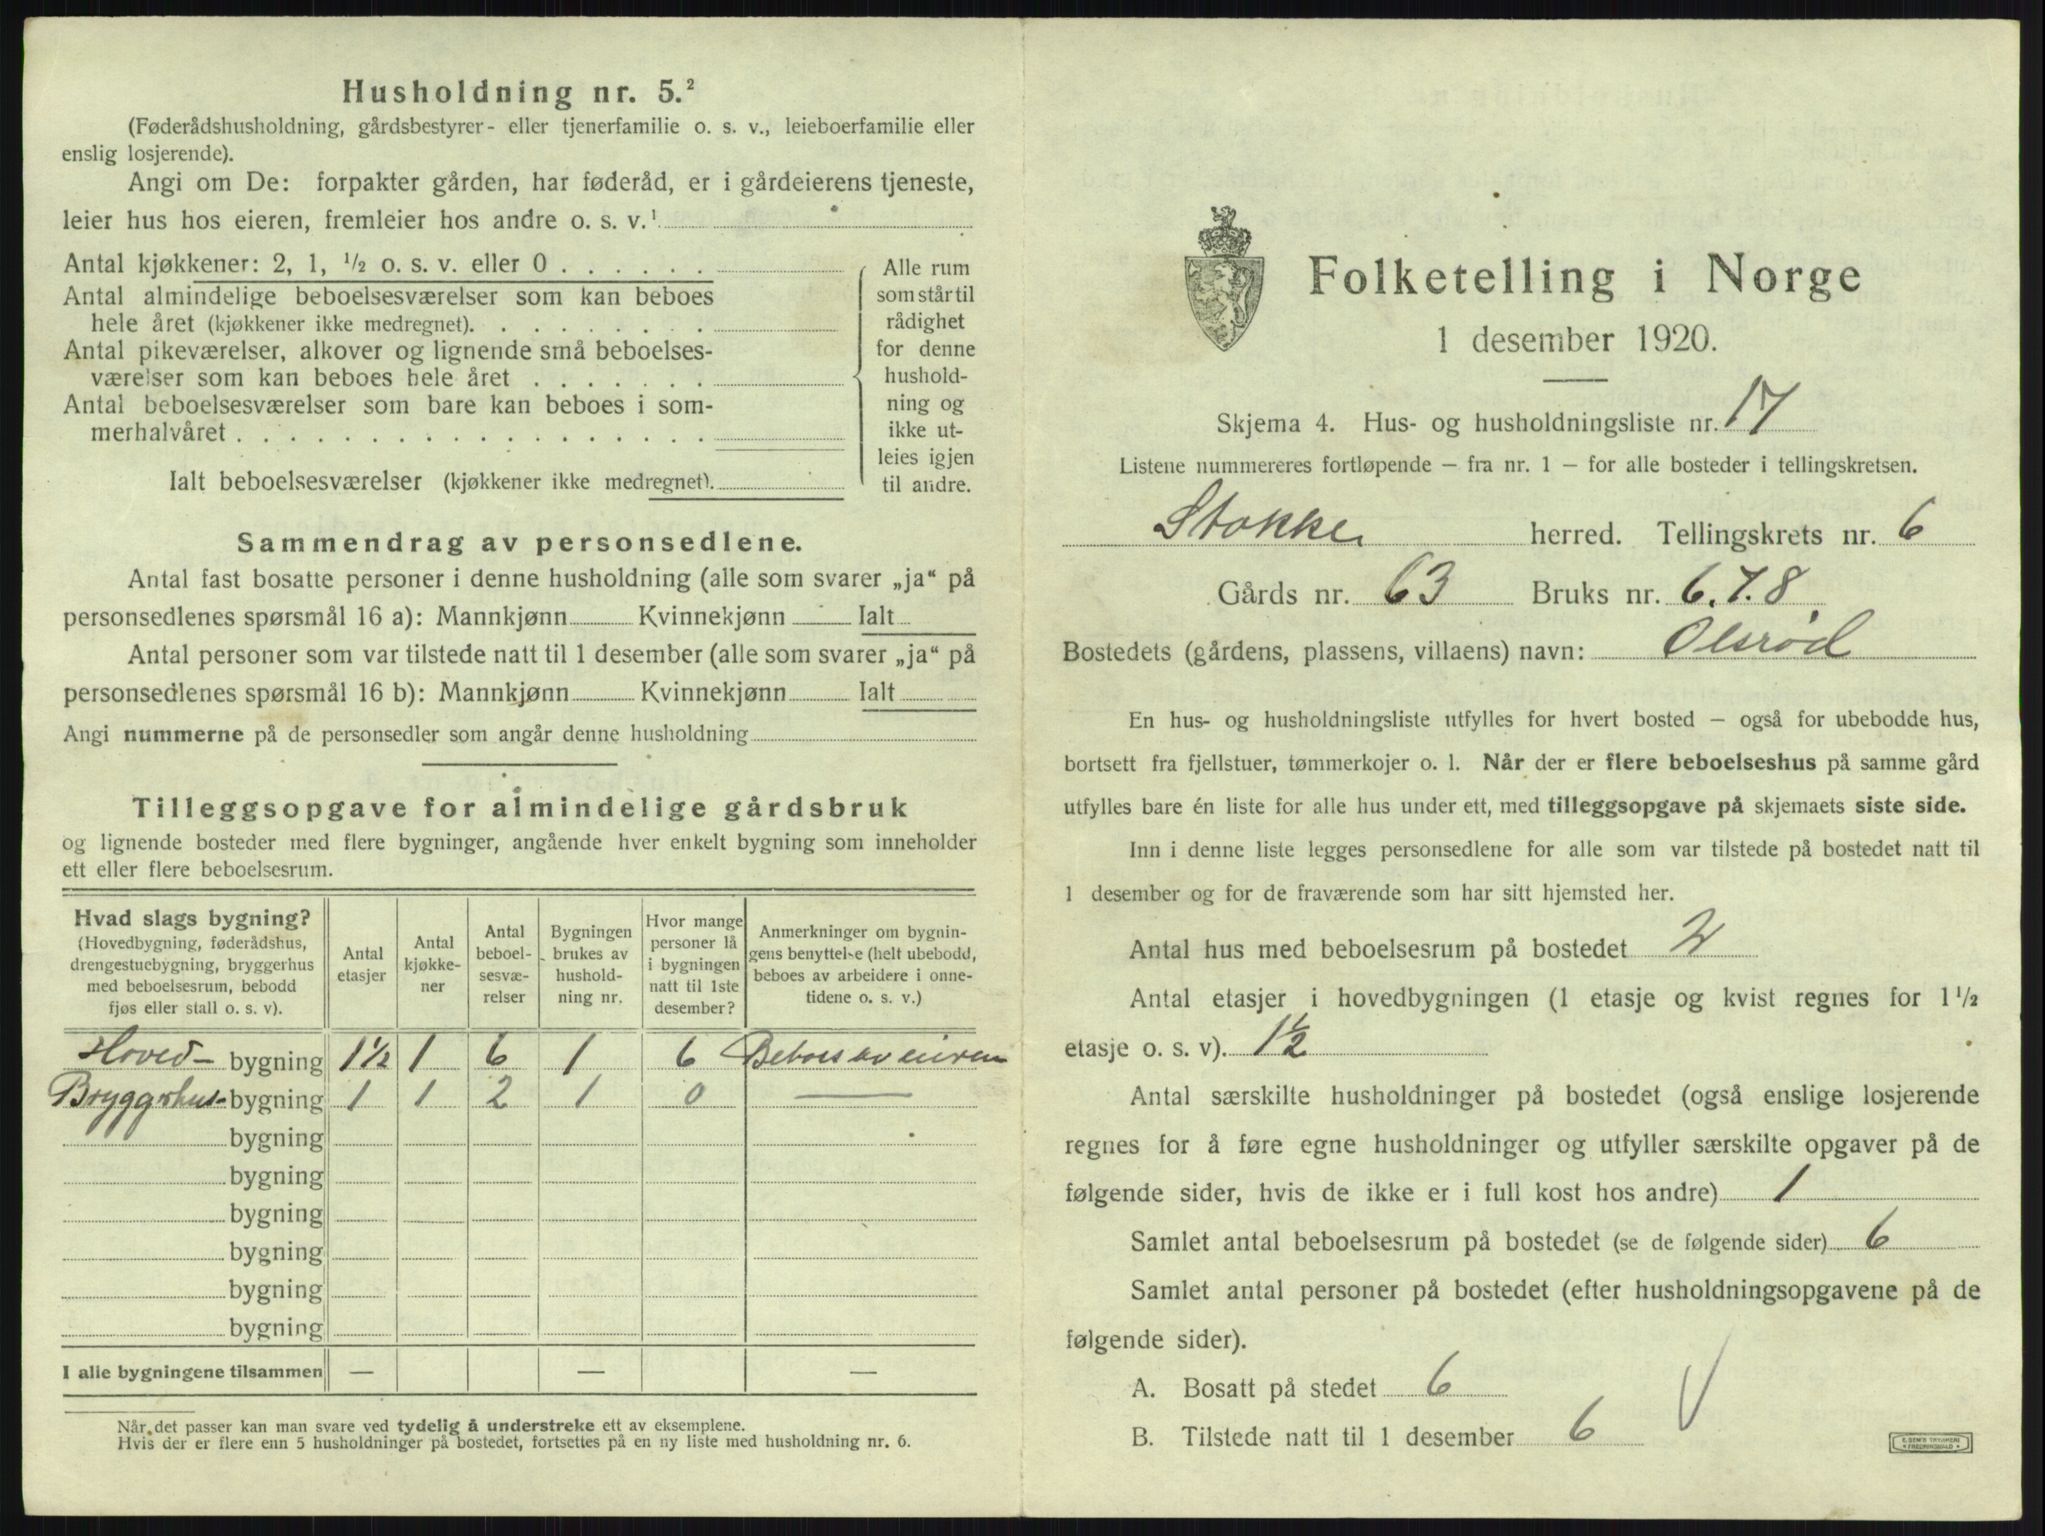 Husholdning nr. 5.²
(Føderådshusholdning, gårdsbestyrer- eller tjenerfamilie o. s. v., leieboerfamilie eller
enslig losjerende).
Angi om De: forpakter gården, har føderåd, er i gårdeierens tjeneste,
leier hus hos eieren, fremleier hos andre o. s. v.¹
Antal kjøkkener: 2, 1, ½ o. s. v. eller 0 . . . . . .
Antal almindelige beboelsesværelser som kan beboes
hele året (kjøkkener ikke medregnet). . . . . . . . .
Antal pikeværelser, alkover og lignende små beboelses-
værelser som kan beboes hele året . . . . . . .
Antal beboelsesværelser som bare kan beboes i som-
merhalvåret . . . . . . . . . . . . . . . . . .
Ialt beboelsesværelser (kjøkkener ikke medregnet).
Alle rum
som står til
rådighet
for denne
hushold-
ning og
ikke ut-
leies igjen
til andre.
Sammendrag av personsedlene.
Antal fast bosatte personer i denne husholdning (alle som svarer „ja“ på
personsedlenes spørsmål 16 a): Mannkjønn Kvinnekjønn Ialt
Antal personer som var tilstede natt til 1 desember (alle som svarer „ja“ på
personsedlenes spørsmål 16 b): Mannkjønn Kvinnekjønn Ialt
Angi nummerne på de personsedler som angår denne husholdning
Tilleggsopgave for almindelige gårdsbruk
og lignende bosteder med flere bygninger, angående hver enkelt bygning som inneholder
ett eller flere beboelsesrum.
Hvad slags bygning?
(Hovedbygning, føderådshus,
drengestuebygning, bryggerhus
med beboelsesrum, bebodd
fjøs eller stall o. s. v).
Antal
etasjer
Antal
kjøkke-
ner
Antal
beboel-
sesvæ-
relser
Bygningen
brukes av
hushold-
ning nr.
Hvor mange
personer lå
i bygningen
natt til 1ste
desember?
Anmerkninger om bygnin-
gens benyttelse (helt ubebodd,
beboes av arbeidere i onne-
tidene o. s. v.)
Hoved- bygning 1½ 1 6 1 6 Beboes av eieren
Bryggerhus- bygning 1 1 2 1 0 —
bygning
bygning
bygning
bygning
bygning
bygning
I alle bygningene tilsammen — — —
Når det passer kan man svare ved tydelig å understreke ett av eksemplene.
Hvis der er flere enn 5 husholdninger på bostedet, fortsettes på en ny liste med husholdning nr. 6.
Folketelling i Norge
1 desember 1920.
Skjema 4. Hus- og husholdningsliste nr. 17
Listene nummereres fortløpende – fra nr. 1 – for alle bosteder i tellingskretsen.
Stokke herred. Tellingskrets nr. 6
Gårds nr. 63 Bruks nr. 6.7.8.
Bostedets (gårdens, plassens, villaens) navn: Olsrød
En hus- og husholdningsliste utfylles for hvert bosted – også for ubebodde hus,
bortsett fra fjellstuer, tømmerkojer o. l. Når der er flere beboelseshus på samme gård
utfylles bare én liste for alle hus under ett, med tilleggsopgave på skjemaets siste side.
Inn i denne liste legges personsedlene for alle som var tilstede på bostedet natt til
1 desember og for de fraværende som har sitt hjemsted her.
Antal hus med beboelsesrum på bostedet 2
Antal etasjer i hovedbygningen (1 etasje og kvist regnes for 1½
etasje o. s. v). 1½
Antal særskilte husholdninger på bostedet (også enslige losjerende
regnes for å føre egne husholdninger og utfyller særskilte opgaver på de
følgende sider, hvis de ikke er i full kost hos andre) 1
Samlet antal beboelsesrum på bostedet (se de følgende sider) 6
Samlet antal personer på bostedet (efter husholdningsopgavene på de
følgende sider).
A. Bosatt på stedet 6
B. Tilstede natt til 1 desember 6